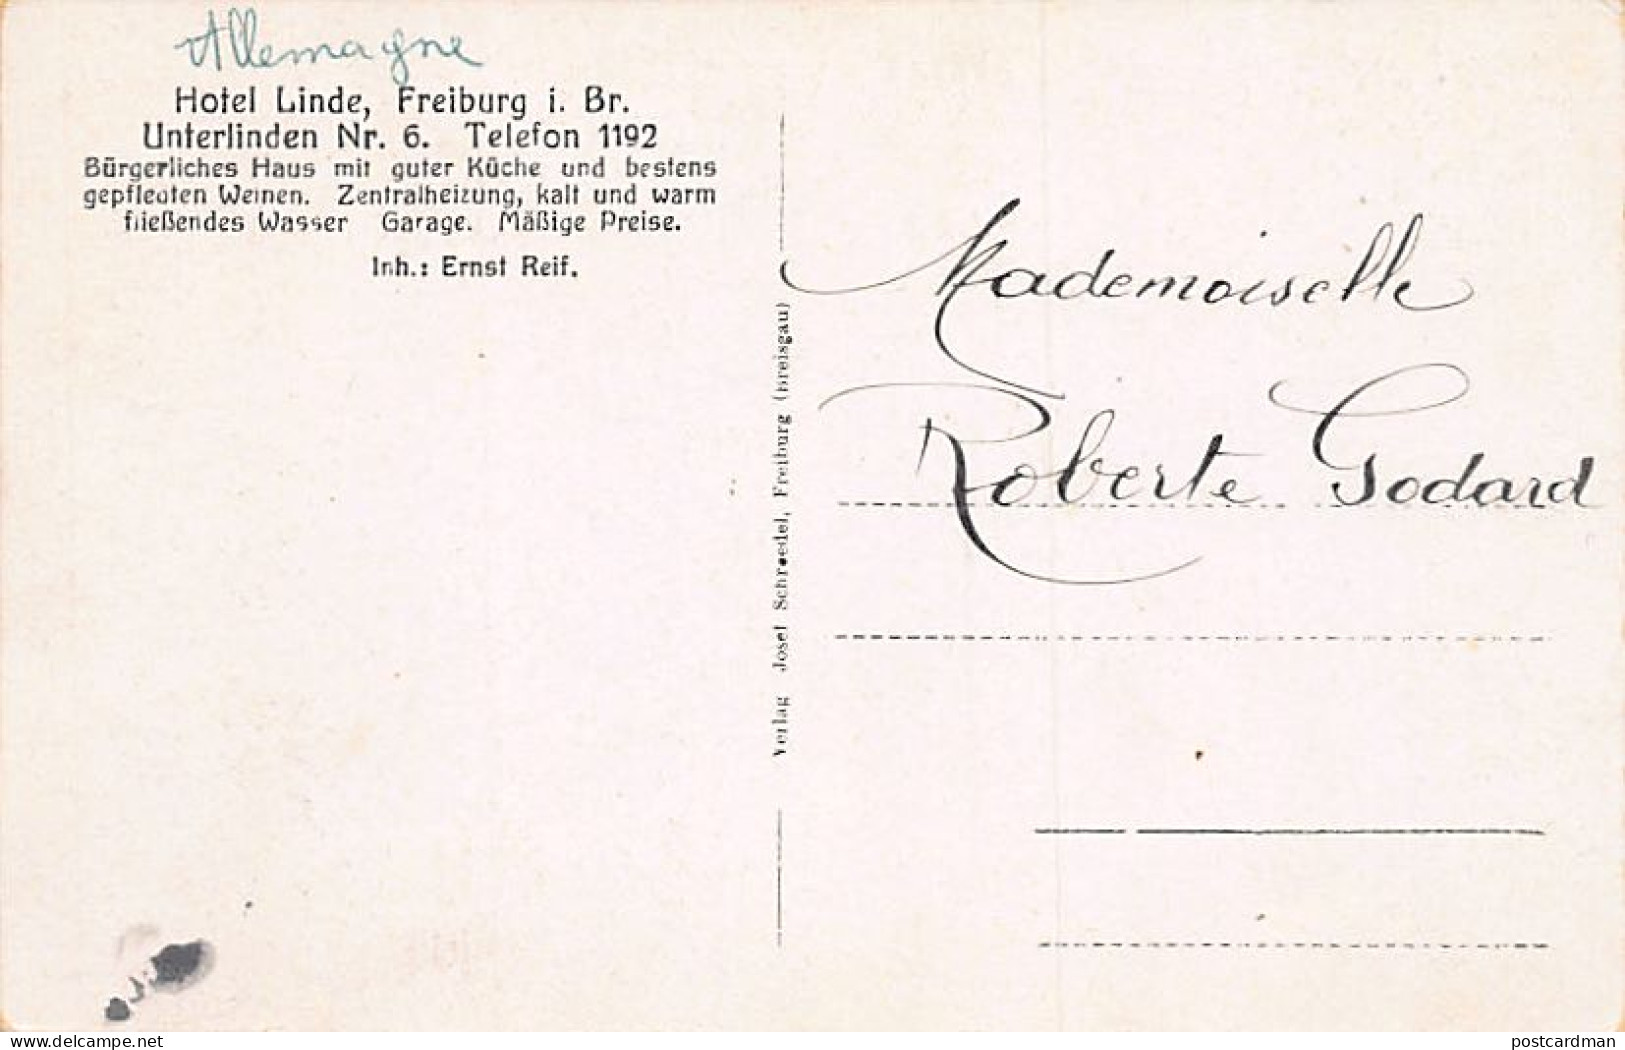 Allemagne
Hotel Linde, Freiburg i. Br.
Unterlinden Nr. 6. Telefon 1192
Bürgerliches Haus mit guter Küche und bestens
gepflegten Weinen. Zentralheizung, kalt und warm
fließendes Wasser Garage. Mäßige Preise.
Inh.: Ernst Reif.
Verlag Josef Schroedel, Freiburg (Breisgau)
Mademoiselle
Roberte Godard
www.delcampe.net
postcardman